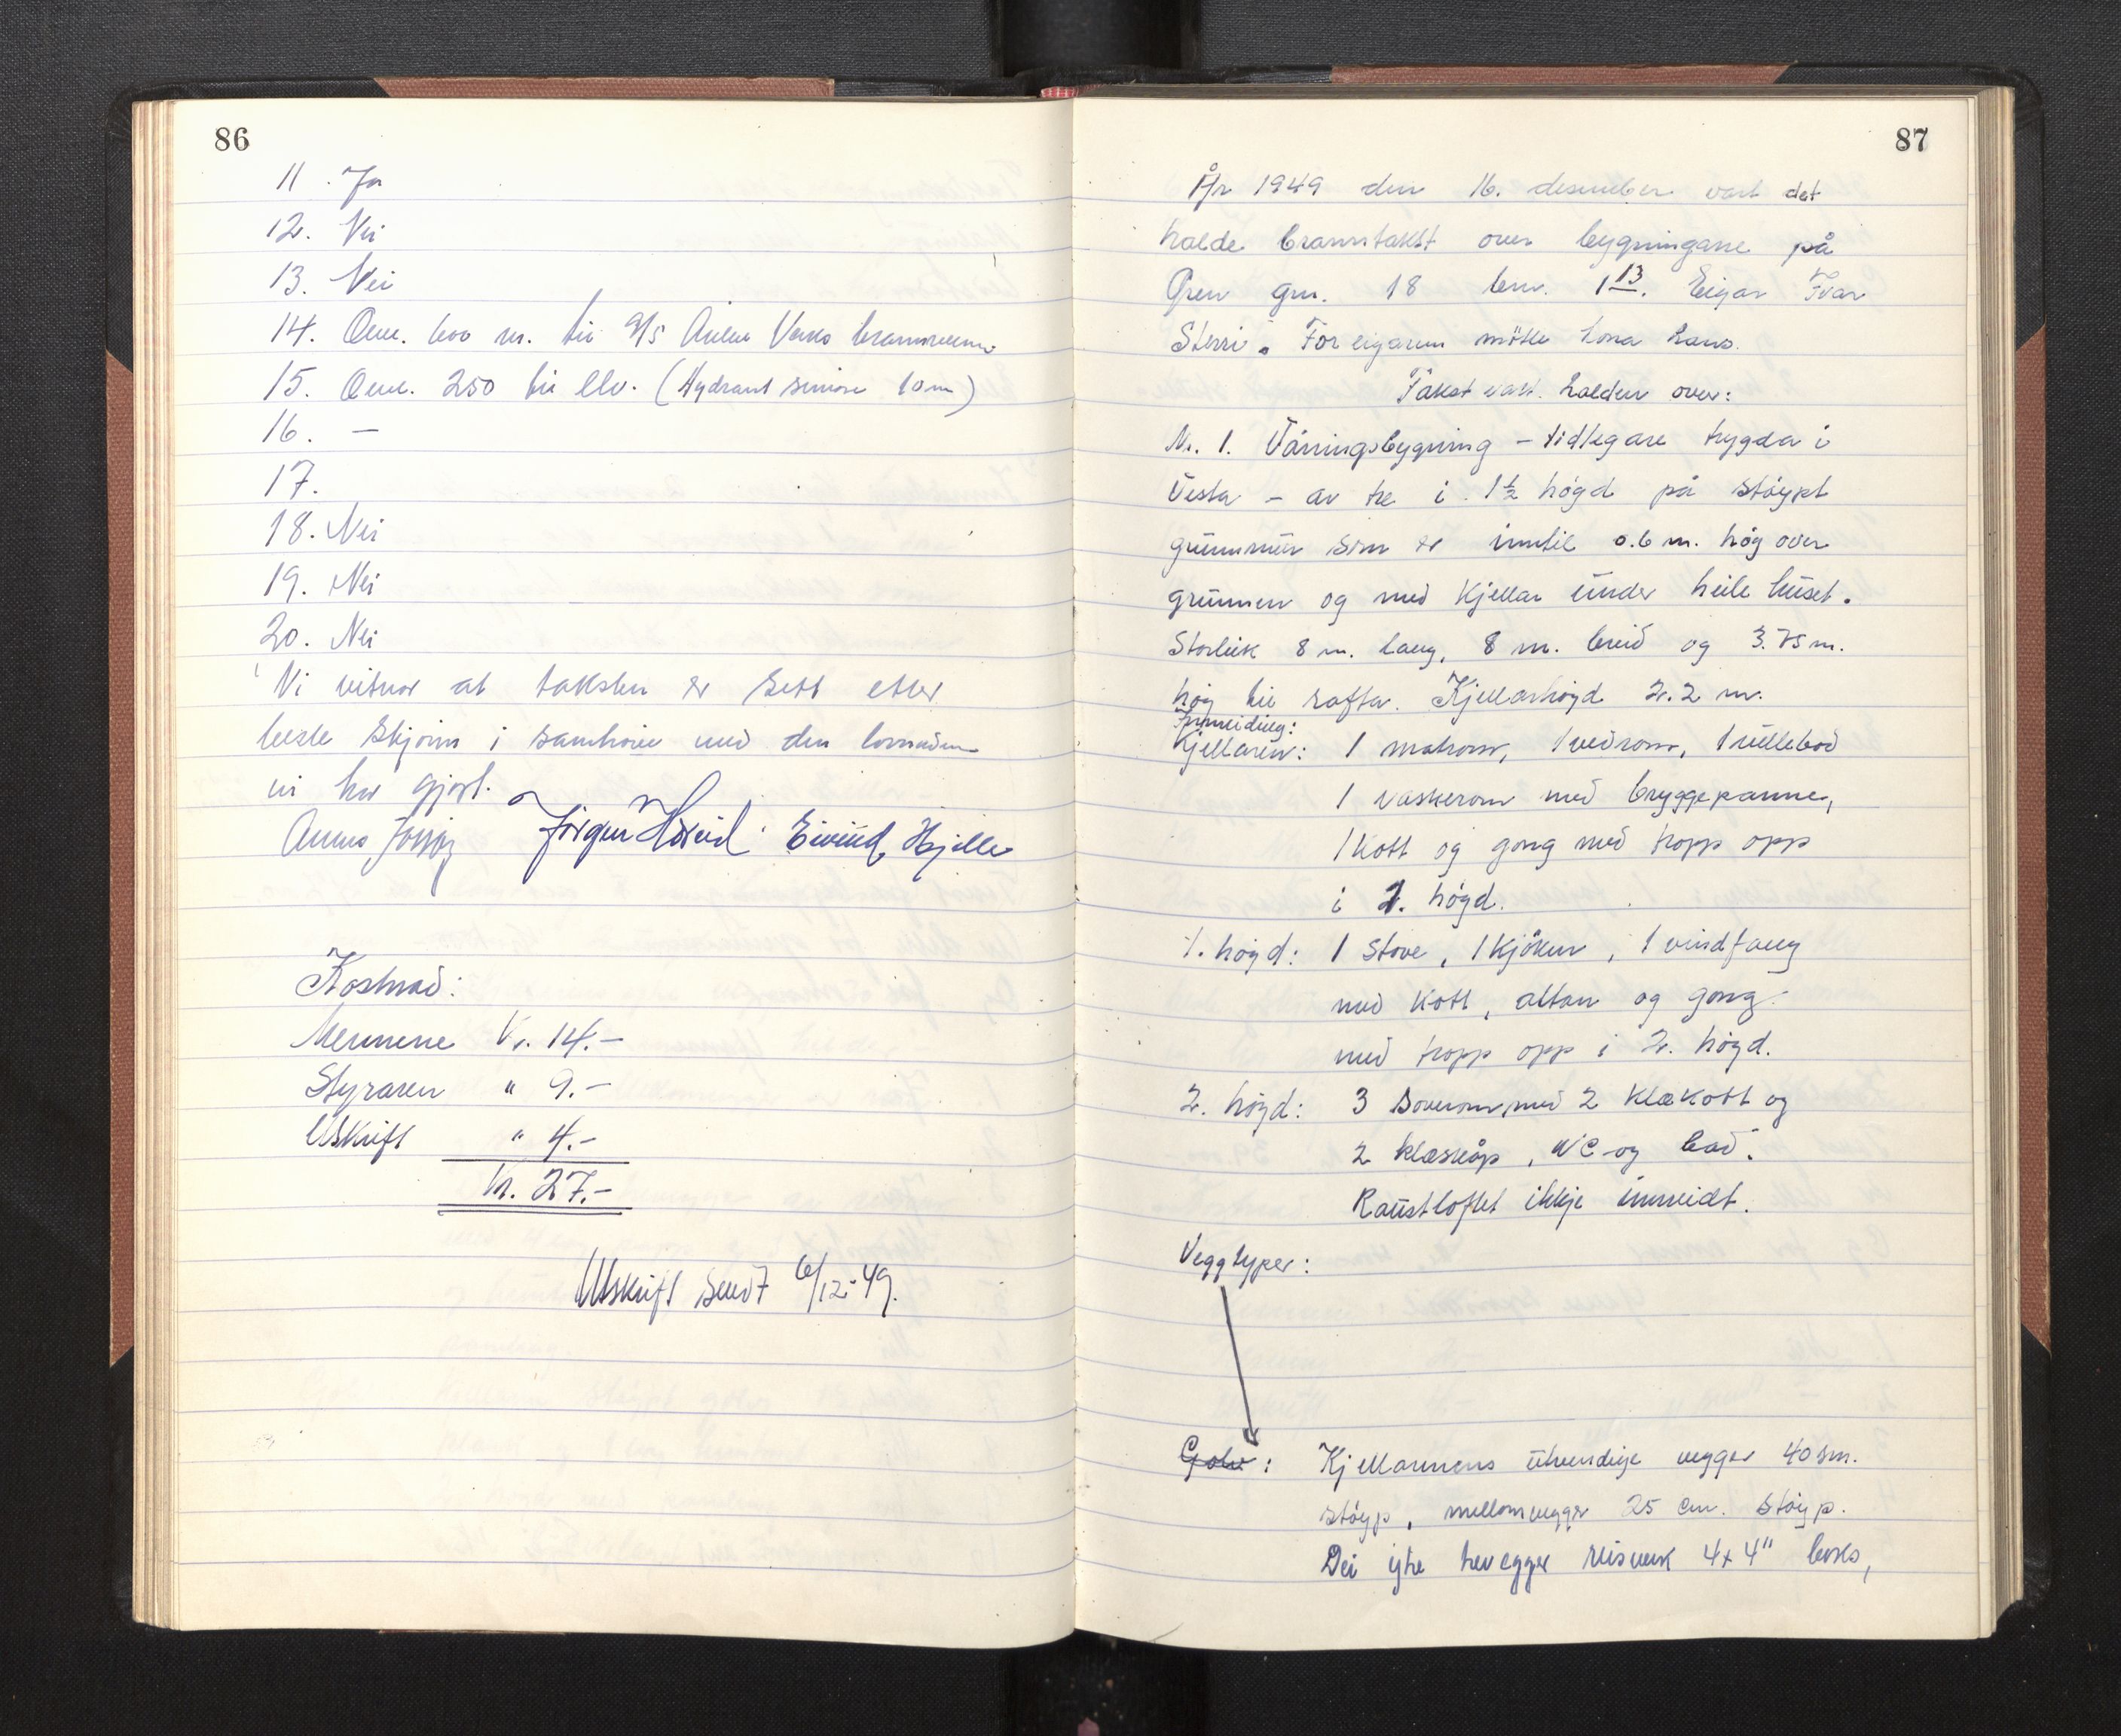 86
11. Ja
12. Nei
13. Nei
14. Oml. 600 m. til A/S Årdal Verks brannvern
15. Oml. 250 til elv. (Hydrant seinare 10 m)
16. —
17.
18. Nei
19. Nei
20. Nei
Vi vitnar at taksten er sett etter
beste skjønn i samhøve med den
vi har gjort.
Jørgen Eivind Hjelle
Kostnad:
Mennene Kr. 14.-
Styraren " 9.-
Utskrift " 4.-
Kr. 27.-
Utskrift sendt 6/12-49.
87
År 1949 den 16. desember vart det
halde branntakst over bygningane på
Øren gnr. 18 bnr. 1 13. Eigar Ivar
Sterri. For eigaren møtte kona hans.
Takst vart halden over:
Nr. 1. Våningsbygning – tidlegare trygda i
Vesta – av tre i 1½ høgd på støypt
grunnmur som er inntil 0.6 m. høg over
grunnen og med kjellar under heile huset.
Storleik 8 m. lang, 8 m. breid og 3.75 m.
høg til rafta. Kjellarhøgd 2.2 m.
Innreiding:
Kjellaren: 1 matrom, 1 vedrom, 1 rullebod
1 vaskerom med bryggepanne,
1 kott og gong med tropp opp
i 1. høgd.
1. høgd: 1 stove, 1 kjøken, 1 vindfang
med kott, altan og gong
med tropp opp i 2. høgd.
2. høgd: 3 soverom med 2 klækott og
2 klæskåp, WC og bad.
Raustloftet ikkje innreidt.
Veggtyper:
Golv: Kjellarmurens utvendige vegger 40 sm.
støyp, mellomvegger 25 cm. støyp.
Dei ytre trevegger reisverk 4x4" boks,